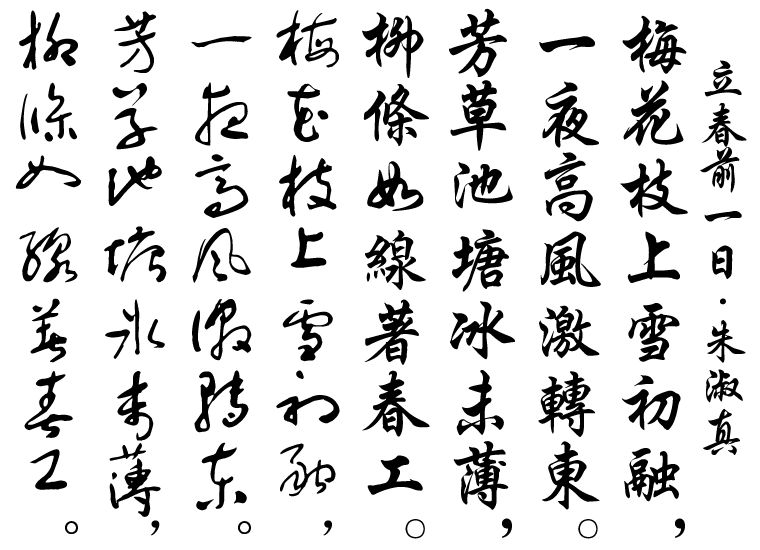 立春前一日·朱淑真
梅花枝上雪初融，
一夜高風激轉東。
芳草池塘冰未薄，
柳條如線著春工。
梅花枝上雪初融，
一夜高風激轉東。
芳草池塘冰未薄，
柳條如線著春工。